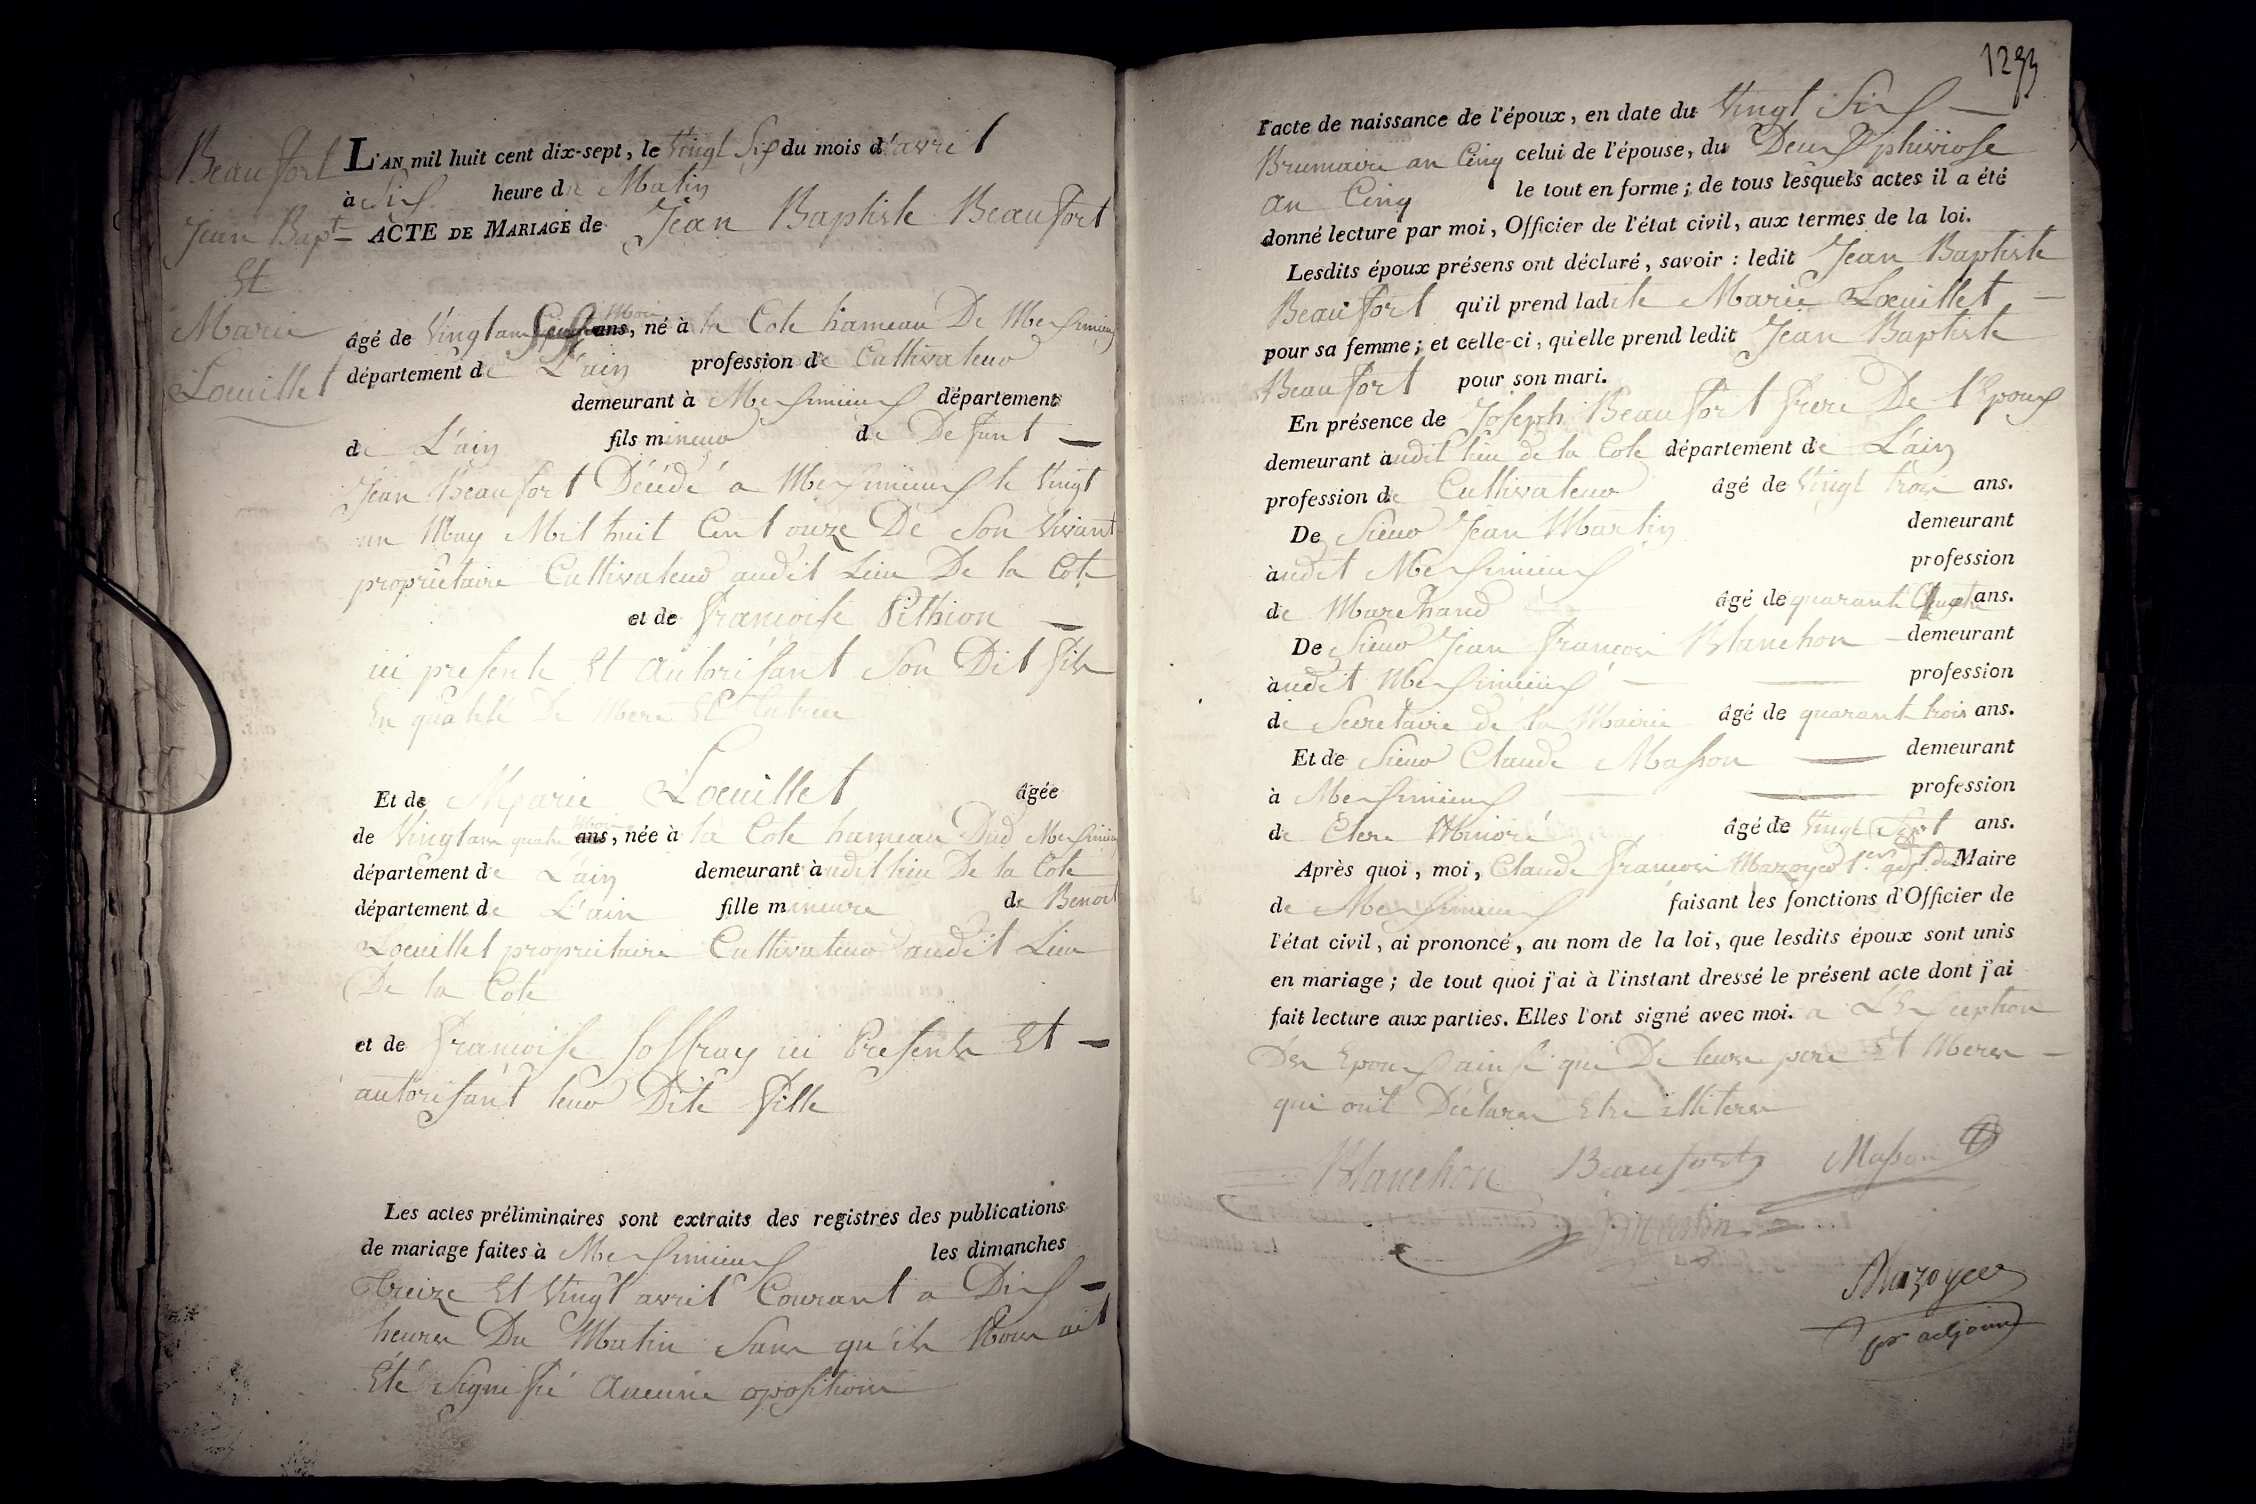 Beaufort
Jean Bapt
Et
Marie
Loeuillet
L'AN mil huit cent dix-sept, le Vingt Six du mois d'avril
à Six heure de Matin
ACTE DE MARIAGE de Jean Baptiste Beaufort
âgé de Vingt ans Mois ans, né à la Cote hameau De Messimieux
département de L'ain profession de Cultivateur
demeurant à Messimieux département
de L'ain fils mineur de Defunt
Jean Beaufort Décédé a Messimieux le Vingt
un May Mil huit Cent onze De Son Vivant
propriétaire Cultivateur audit Lieu De la Cote
et de francoise Pithion
ici presente Et Autorisant Son Dit fils
En qualité De Mere Et Tutrice
Et de Marie Loeuillet âgée
de Vingt ans quatre mois ans, née à la Cote hameau Dud Messimieux
département de L'ain demeurant audit lieu De la Cote
département de L'ain fille mineure de Benoit
Loeuillet propriétaire Cultivateur audit Lieu
De la Cote
et de francoise Joffray ici Presents Et
autorisant leur Dite fille
Les actes préliminaires sont extraits des registres des publications
de mariage faites à Messimieux les dimanches
treize Et Vingt avril Courant a Dix
heures Du Matin Sans qu'ils Nous ait
Eté Signifié Aucune oposition
1293
l'acte de naissance de l'époux, en date du Vingt Six
Brumaire an Cinq celui de l'épouse, du Deux pluviose
an Cinq le tout en forme; de tous lesquels actes il a été
donné lecture par moi, Officier de l'état civil, aux termes de la loi.
Lesdits époux présens ont déclaré, savoir : ledit Jean Baptiste
Beaufort qu'il prend ladite Marie Loeuillet
pour sa femme; et celle-ci, qu'elle prend ledit Jean Baptiste
Beaufort pour son mari.
En présence de Joseph Beaufort frere De l'Epoux
demeurant audit lieu de la Cote département de L'ain
profession de Cultivateur âgé de Vingt trois ans.
De Sieur Jean Martin demeurant
audit Messimieux profession
de Marchand âgé de quarante quatre ans.
De Sieur Jean francois Blanchon demeurant
audit Messimieux profession
de Secretaire de la Mairie âgé de quarante trois ans.
Et de Sieur Claude Masson demeurant
à Messimieux profession
de Clerc Minoré âgé de Vingt Sept ans.
Après quoi, moi, Claude francois Mazoyer 1er adjt du Maire
de Messimieux faisant les fonctions d'Officier de
l'état civil, ai prononcé, au nom de la loi, que lesdits époux sont unis
en mariage; de tout quoi j'ai à l'instant dressé le présent acte dont j'ai
fait lecture aux parties. Elles l'ont signé avec moi. a L'Exception
Des Epoux ainsi que De leurs pere Et Meres
qui ont Déclarer Etre illiteres
Blanchon Beaufort Masson
J Martin
Mazoyer
1er adjoint